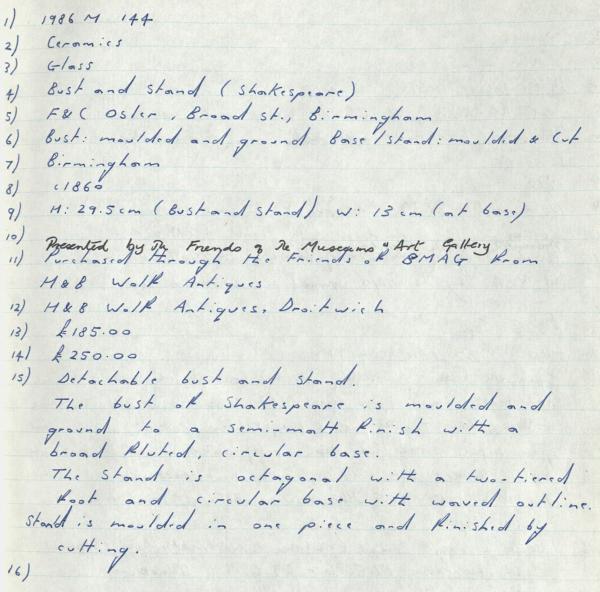 1) 1986 M 144
2) Ceramics
3) Glass
4) Bust and stand (Shakespeare)
5) F&C Osler, Broad St., Birmingham
6) Bust: moulded and ground Base/stand: moulded & cut
7) Birmingham
8) c1860
9) H: 29.5cm (Bust and stand) W: 13cm (at base)
10) Presented by the Friends of the Museums & Art Gallery
11) Purchased through the Friends of BMAG from
H&B Wolf Antiques
12) H&B Wolf Antiques, Droitwich
13) £185.00
14) £250.00
15) Detachable bust and stand.
The bust of Shakespeare is moulded and
ground to a semi-matt finish with a
broad fluted, circular base.
The stand is octagonal with a two-tiered
foot and circular base with waved outline.
Stand is moulded in one piece and finished by
cutting.
16)